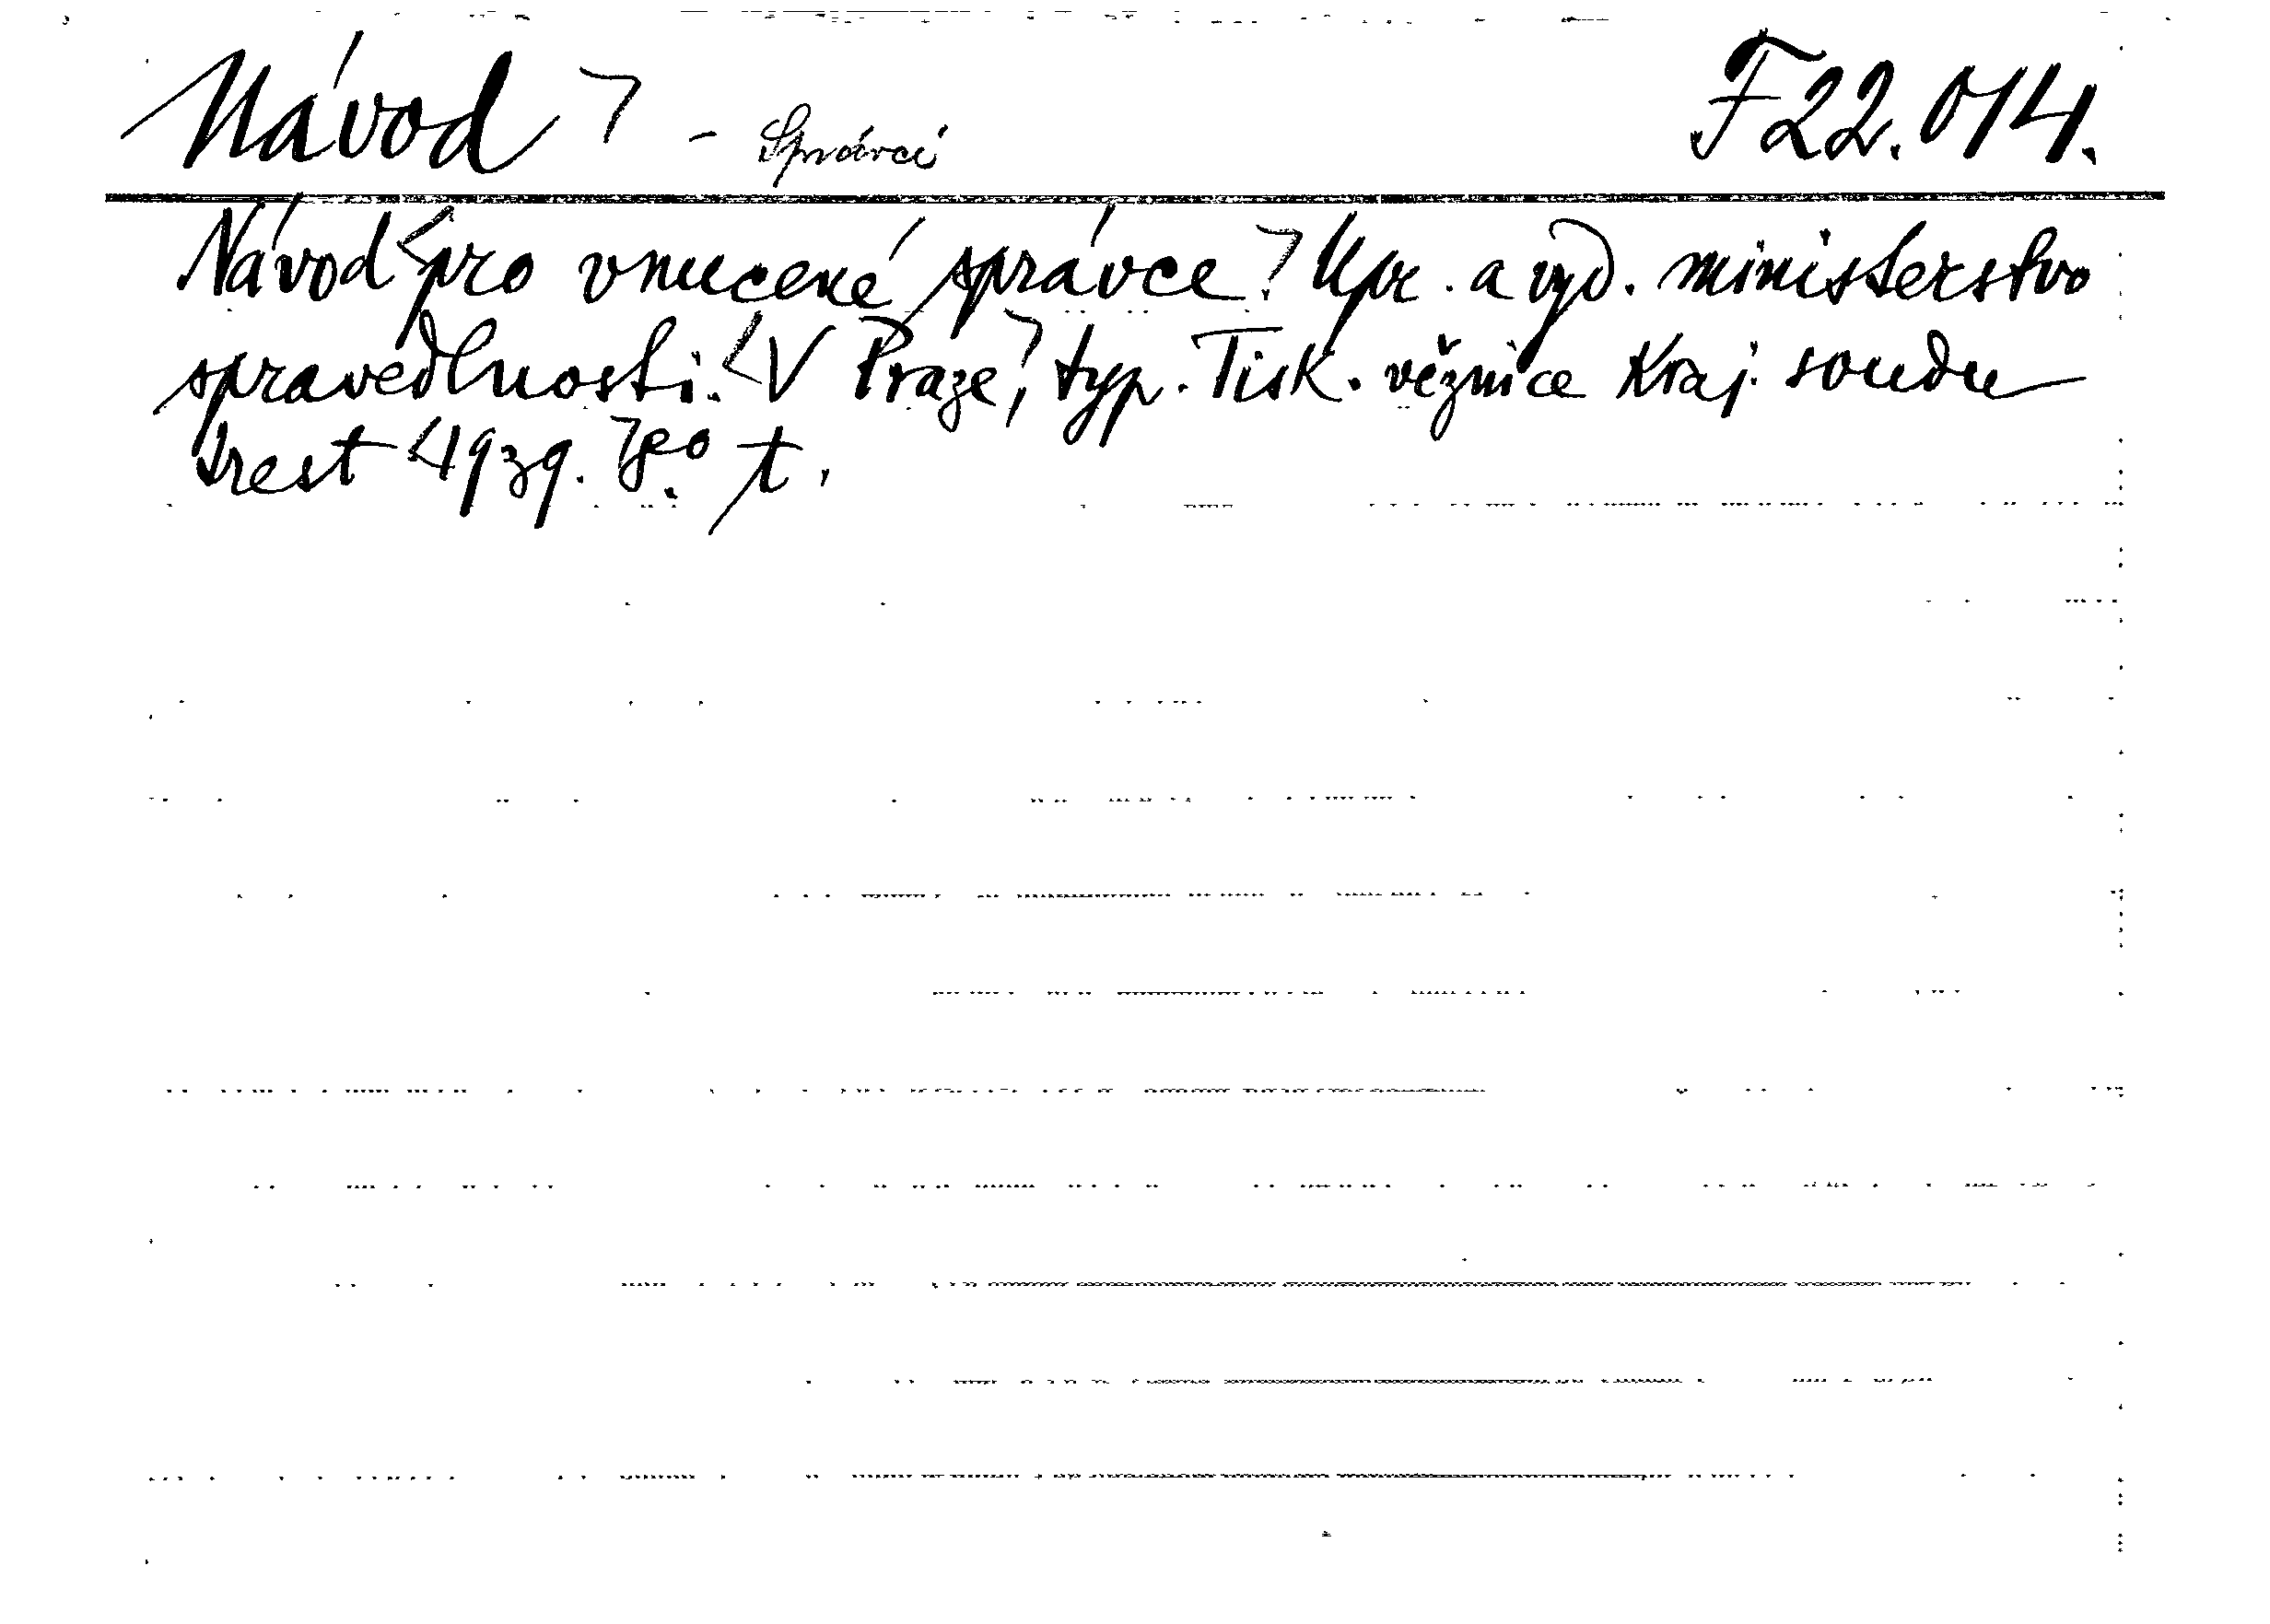 Návod - Správci F 22.014.
Návod pro vnucené správce. Upr. a vyd. ministerstvo
spravedlnosti. V Praze, typ. Tisk. věznice Kraj. soudu
trest 1939. 8° t.